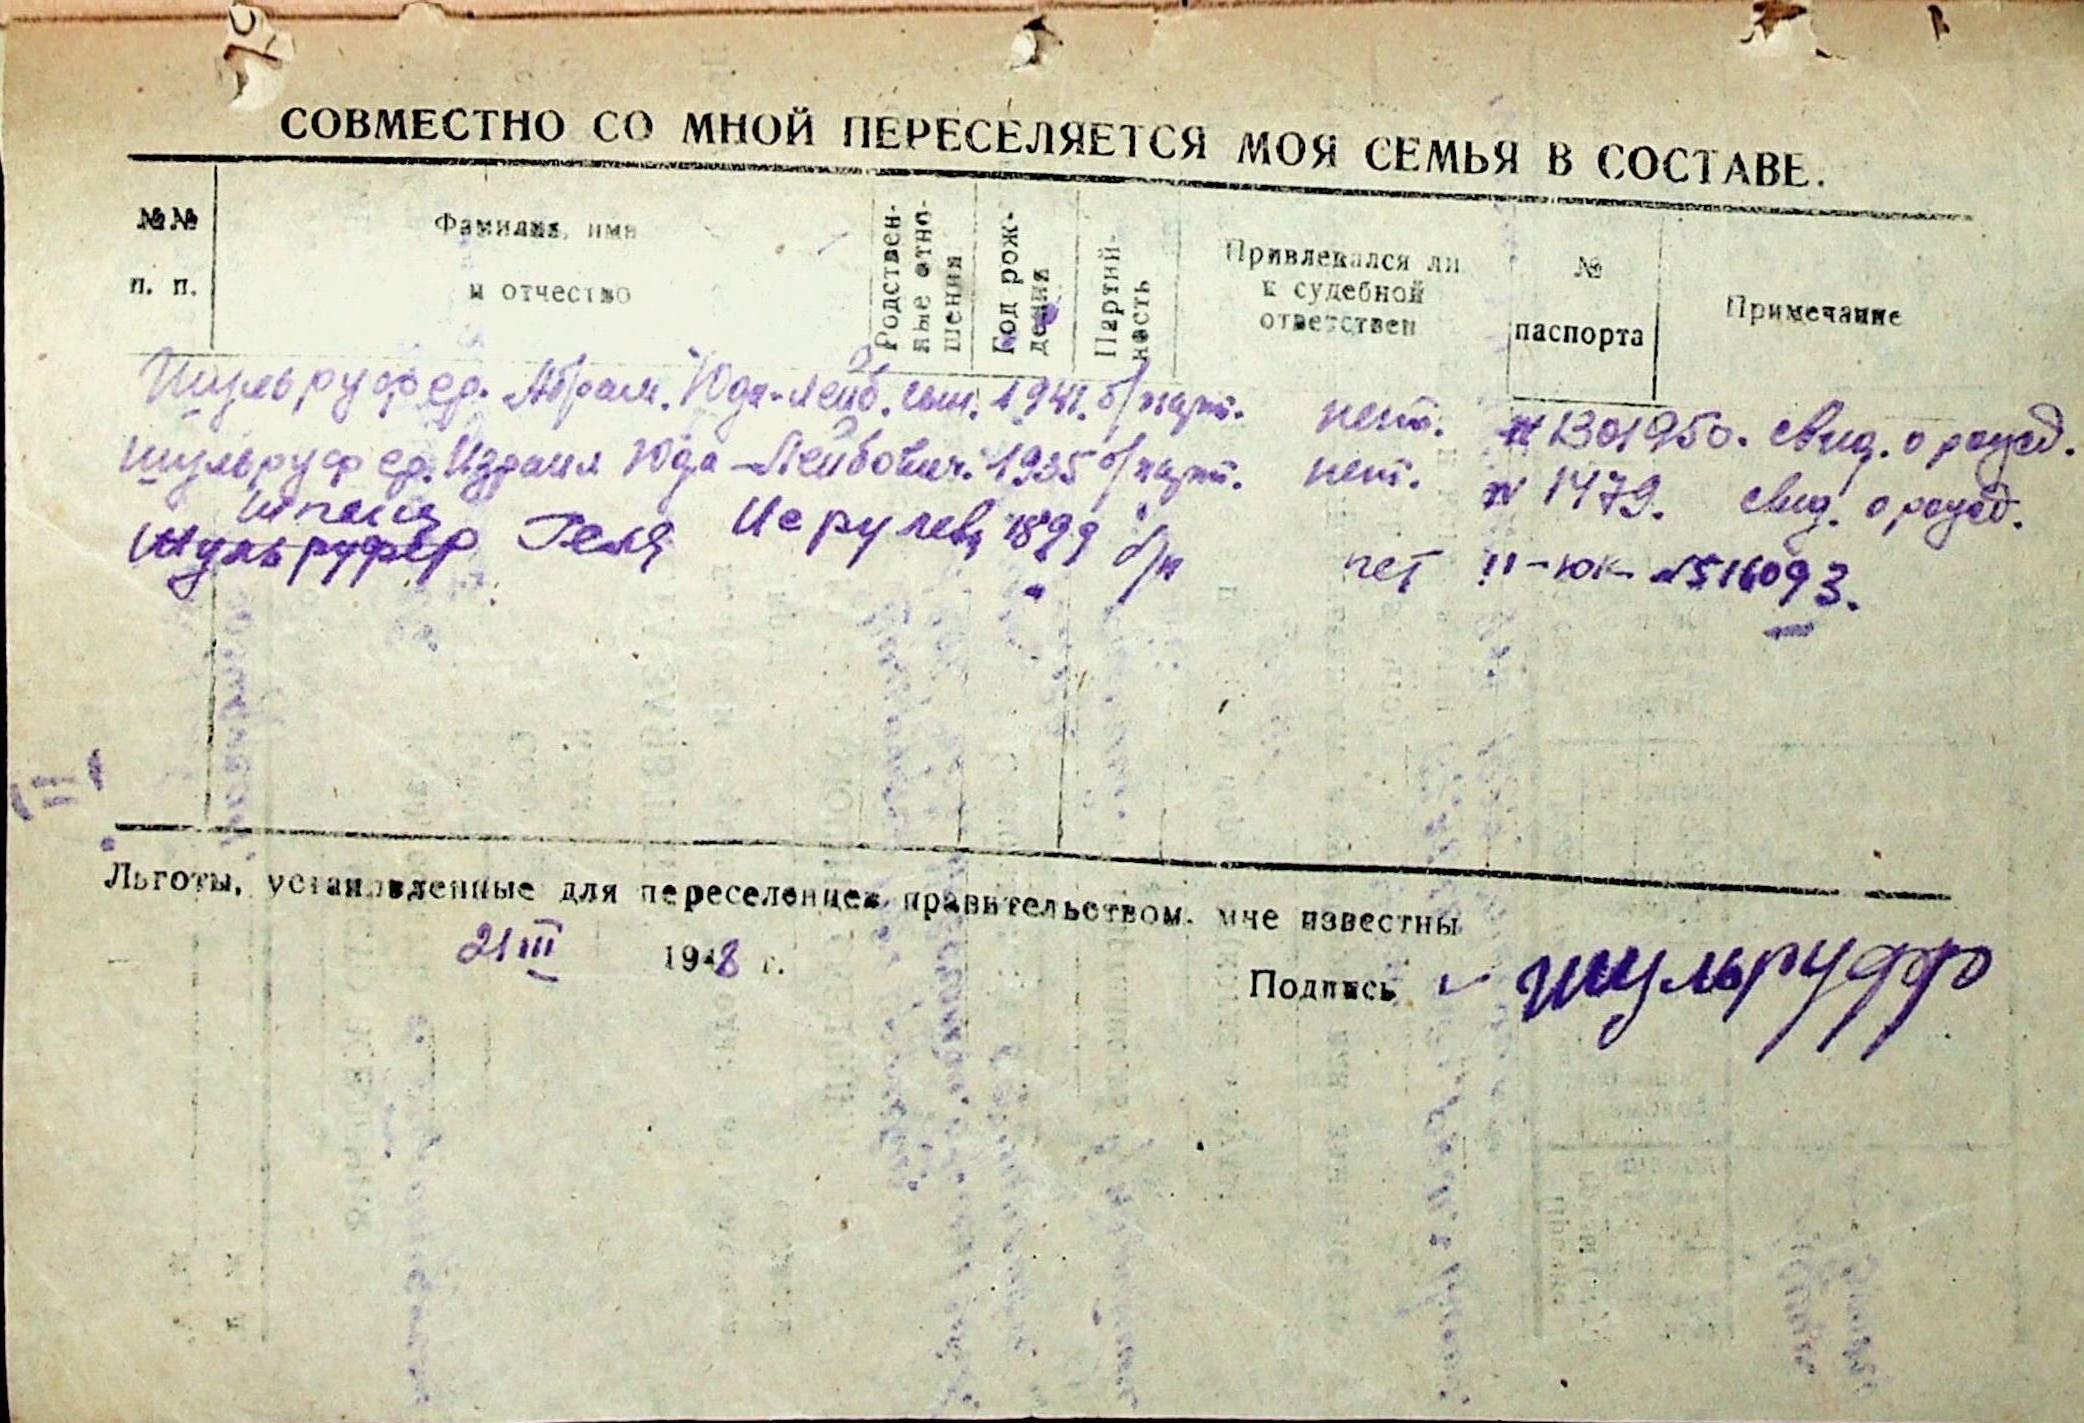 СОВМЕСТНО СО МНОЙ ПЕРЕСЕЛЯЕТСЯ МОЯ СЕМЬЯ В СОСТАВЕ.
№№ п. п.
Фамилия, имя и отчество
Родственные отношения
Год рождения
Партийность
Привлекался ли к судебной ответствен
№ паспорта
Примечание
Шульруффер. Абрам. Юда-Лейб. сын. 1941. б/парт. нет. № 1301950. свид. о рожд.
Шульруффер. Израил Юда-Лейбович. 1935 б/парт. нет. № 1479. свид. о рожд.
Шульруфер Геля 1899 б/п нет II-ЮК № 516093.
Льготы, установленные для переселенцев правительством. мне известны
21 III 1948 г.
Подпись Шульруфф